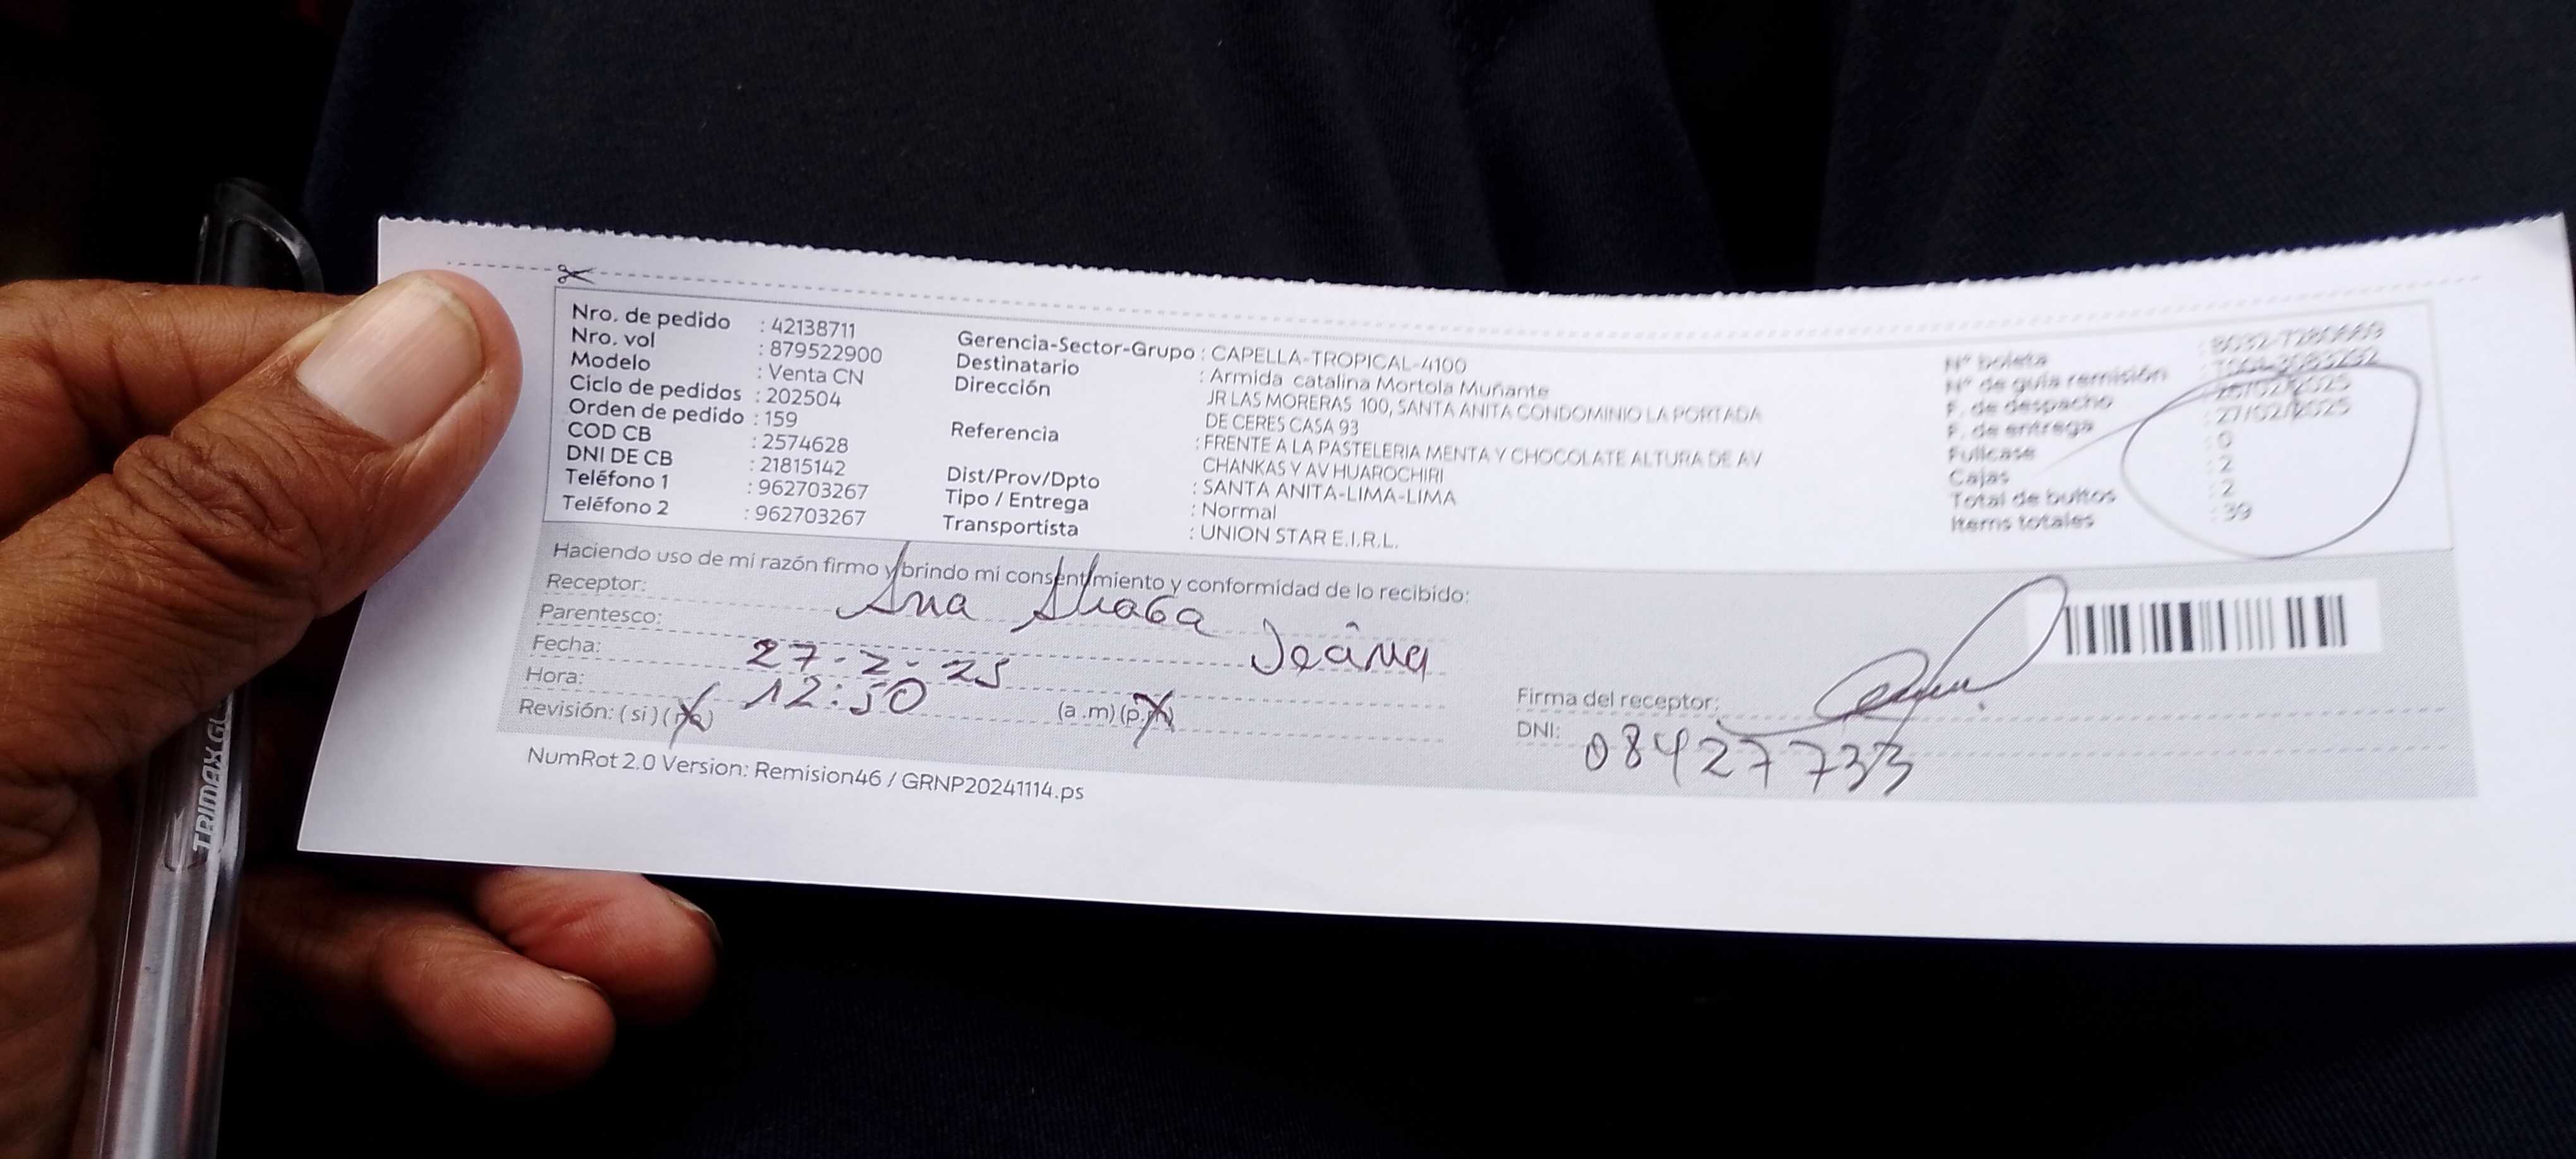 Nro. de pedido : 42138711
Nro. vol : 879522900
Modelo : Venta CN
Ciclo de pedidos : 202504
Orden de pedido : 159
COD CB : 2574628
DNI DE CB : 21815142
Teléfono 1 : 962703267
Teléfono 2 : 962703267
Gerencia-Sector-Grupo : CAPELLA-TROPICAL-4100
Destinatario : Armida catalina Mortola Muñante
Dirección JR LAS MORERAS 100, SANTA ANITA CONDOMINIO LA PORTADA
DE CERES CASA 93
Referencia : FRENTE A LA PASTELERIA MENTA Y CHOCOLATE ALTURA DE AV
CHANKAS Y AV HUAROCHIRI
Dist/Prov/Dpto : SANTA ANITA-LIMA-LIMA
Tipo / Entrega : Normal
Transportista : UNION STAR E.I.R.L.
N° boleta
N° de guía remisión
F. de despacho : 26/02/2025
F. de entrega : 27/02/2025
Fullcase : 0
Cajas : 2
Total de bultos : 2
Items totales : 39
Haciendo uso de mi razón firmo y brindo mi consentimiento y conformidad de lo recibido:
Receptor: Ana
Parentesco:
Fecha: 27-2-25
Hora: 12:50 (a.m) (p.m)
Revisión: (si) (no)
Firma del receptor:
DNI: 08427733
NumRot 2.0 Version: Remision46 / GRNP20241114.ps
TRIMAX